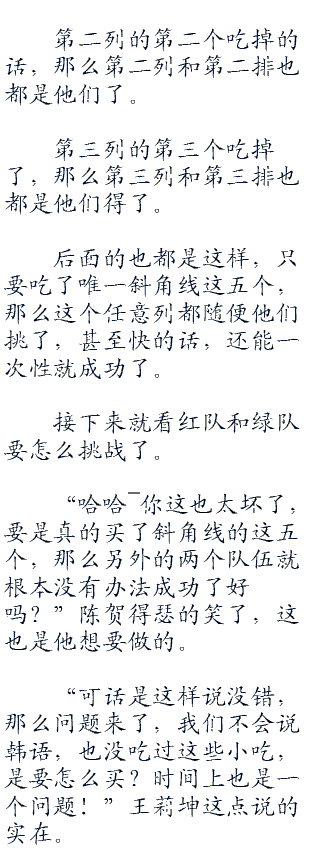 第二列的第二个吃掉的
话，那么第二列和第二排也
都是他们了。
第三列的第三个吃掉
了，那么第三列和第三排也
都是他们得了。
后面的也都是这样，只
要吃了唯一斜角线这五个，
那么这个任意列都随便他们
挑了，甚至快的话，还能一
次性就成功了。
接下来就看红队和绿队
要怎么挑战了。
“哈哈¯你这也太坏了，
要是真的买了斜角线的这五
个，那么另外的两个队伍就
根本没有办法成功了好
吗？”陈贺得瑟的笑了，这
也是他想要做的。
“可话是这样说没错，
那么问题来了，我们不会说
韩语，也没吃过这些小吃，
是要怎么买？时间上也是一
个问题！”王莉坤这点说的
实在。